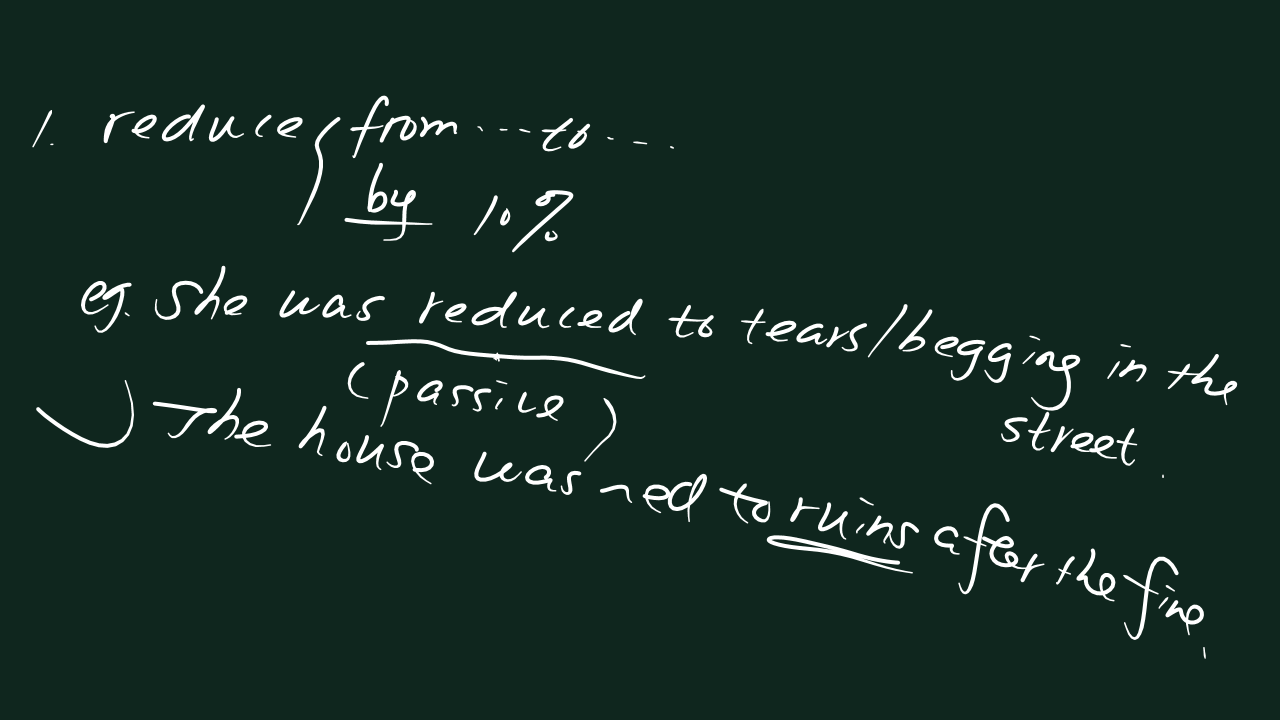 1. reduce { from ... to ...
by 10%
eg. She was reduced to tears/begging in the
street.
(passive)
The house was ~ed to ruins after the fire.